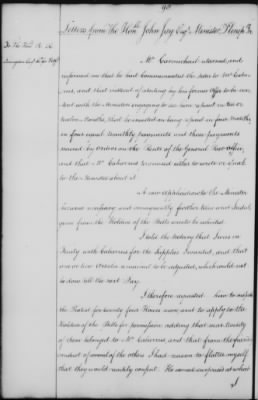 Letters from The Honble John Jay Esqr Minister Plenipo &c
To The Honl R. R.
Livingston Esqr
Mr Carmichael returned, and
informed me that he had communicated the letter to Mr Cabar-
rus, and that instead of abiding by his former offer to be con-
tent with the Ministers engaging to see him repaid in ten or
twelve Months, that he insisted on being repaid in four months
in four equal Monthly payments and those payments
secured by orders on the Rents of the General Post-office,
and that Mr Cabarrus promised either to write or speak
to the Minister about it.
A new application to the Minister
became necessary and consequently further time and Indul-
gence from the Holders of the Bills must be solicited.
I told the Notary that I was in
Treaty with Cabarrus for the Supplies I wanted, and that
one or two Articles remained to be adjusted, which could not
be done till the next Day.
I therefore requested him to suspend
the Protest for twenty four Hours more, and to apply to the
Holders of the Bills for permission adding that near twenty
of them belonged to Mr Cabarrus and that from the friendly
conduct of several of the others I had reason to flatter myself
that they would readily consent. He seemed surprised at what
I